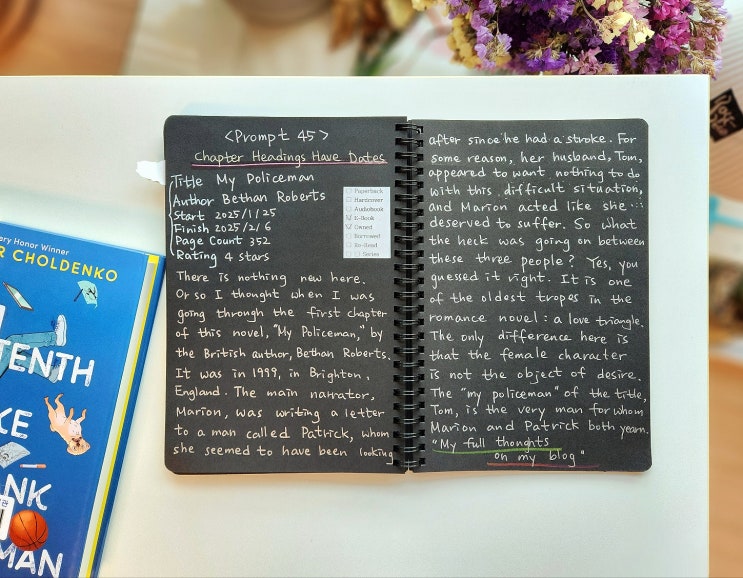 <Prompt 45>
Chapter Headings Have Dates
Title My Policeman
Author Bethan Roberts
Start 2025/1/25
Finish 2025/2/6
Page Count 352
Rating 4 stars
Paperback
Hardcover
Audiobook
E-Book
Owned
Borrowed
Re-Read
Series
There is nothing new here.
Or so I thought when I was
going through the first chapter
of this novel, "My Policeman," by
the British author, Bethan Roberts.
It was in 1999, in Brighton,
England. The main narrator,
Marion, was writing a letter
to a man called Patrick, whom
she seemed to have been looking
after since he had a stroke. For
some reason, her husband, Tom,
appeared to want nothing to do
with this difficult situation,
and Marion acted like she...
deserved to suffer. So what
the heck was going on between
these three people? Yes, you
guessed it right. It is one
of the oldest tropes in the
romance novel: a love triangle.
The only difference here is
that the female character
is not the object of desire.
The "my policeman" of the title,
Tom, is the very man for whom
Marion and Patrick both yearn.
"My full thoughts
on my blog"
ery Honor Winner
R CHOLDENKO
TENTH
KE
NK
MAN